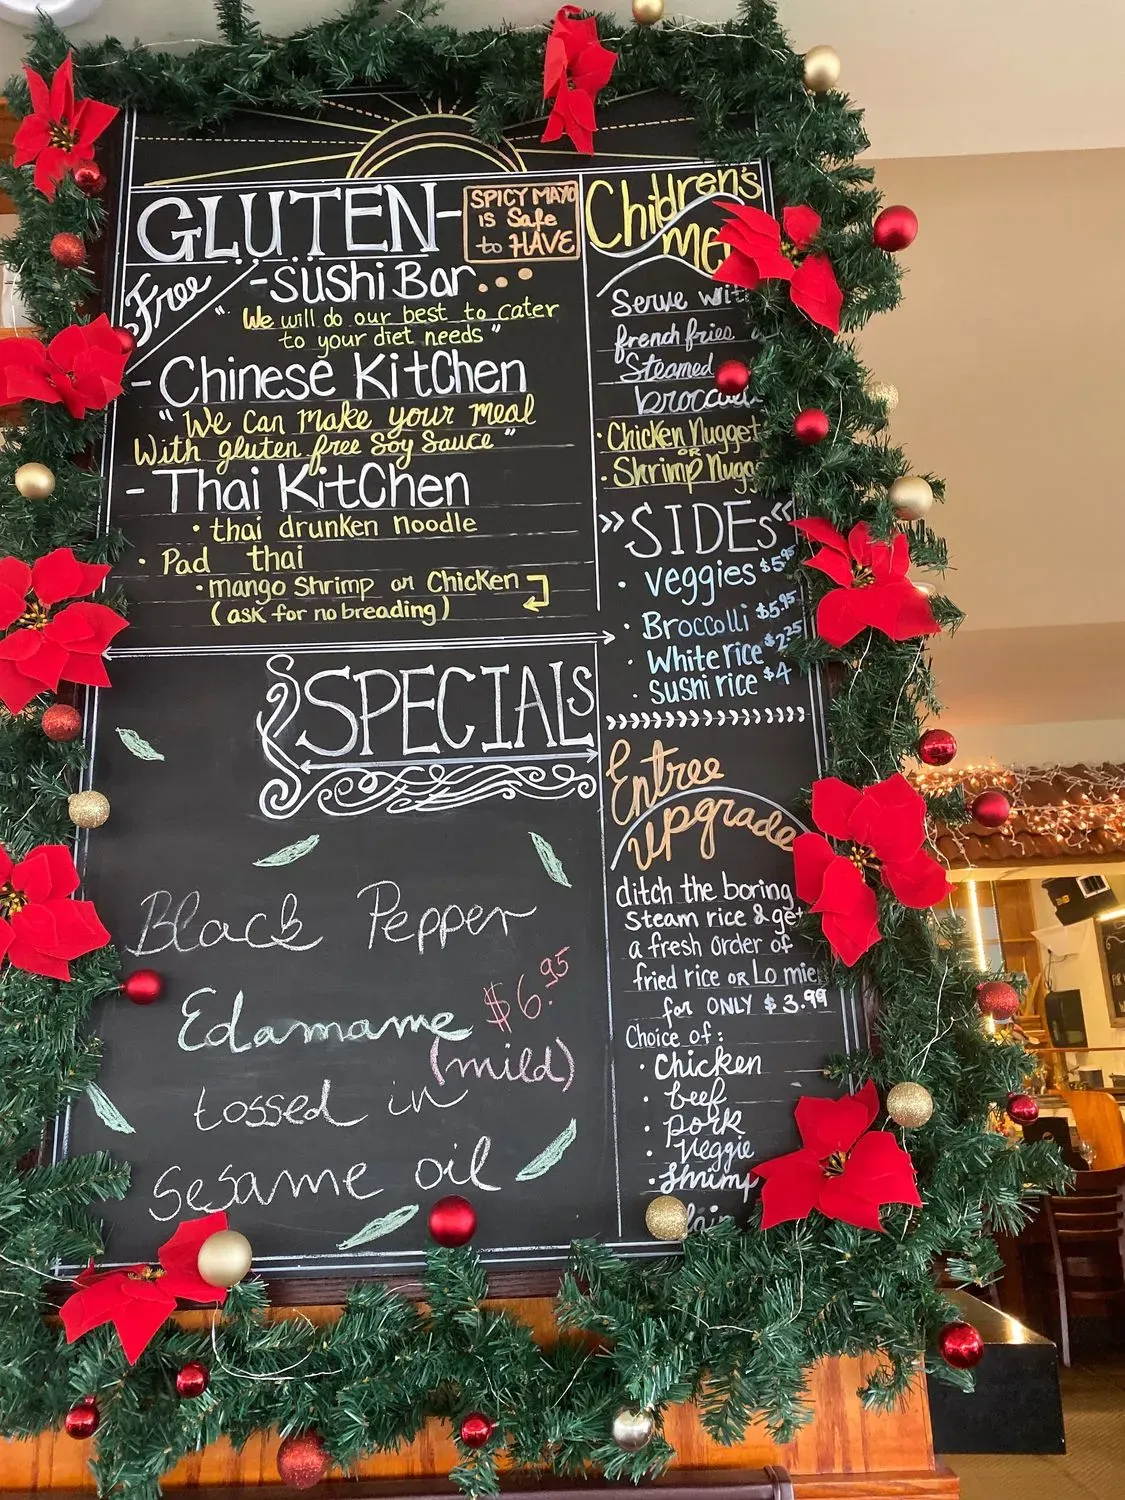 GLUTEN-
Free
SPICY MAYO
is Safe
to HAVE
-SüshiBar...
"We will do our best to cater
to your diet needs"
-Chinese KitChen
"We Can Make your meal
With gluten free Soy Sauce"
-Thai KitChen
• thai drunken noodle
• Pad thai
• mango Shrimp or Chicken
(ask for no breading)
SPECIALS
Black Pepper
Edamame $6.95
(mild)
tossed in
Sesame oil
Children's
Serve
french fries
Steamed
• Chicken Nugget
OR
• Shrimp
»SIDEs«
• veggies $5.95
• Broccolli $5.95
• White rice $2.25
• Sushi rice $4
Entree
upgrade
ditch the boring
Steam rice & get
a fresh order of
fried rice OR Lo
for ONLY $3.99
Choice of:
• Chicken
• beef
• pork
• Veggie
• Shrimp